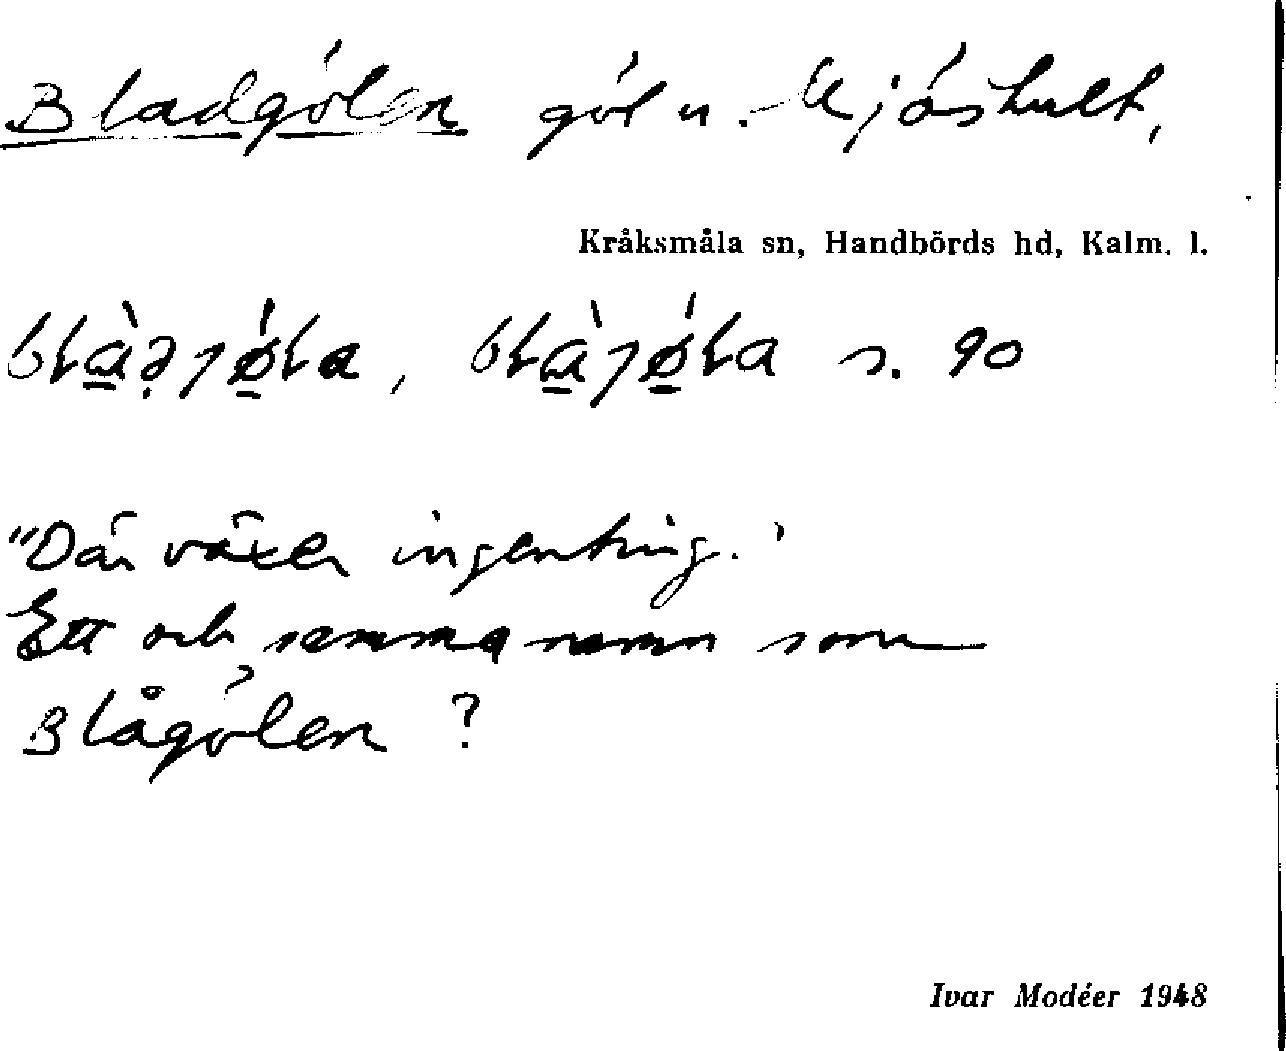 Bladgölen göl u.
Kråksmåla sn, Handbörds hd, Kalm. l.
s. 90
"Där växer ingenting."
Ett och samma namn som
Blågölen ?
Ivar Modéer 1948